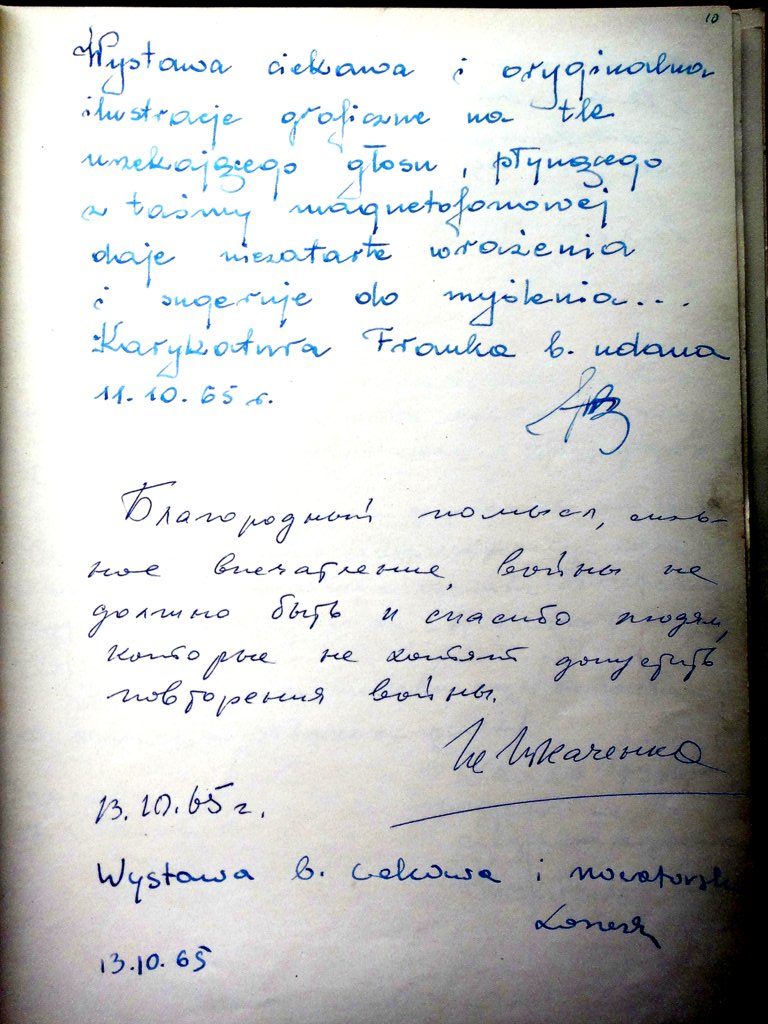 10
Wystawa ciekawa i oryginalna
ilustracje graficzne na tle
urzekającego głosu, płynącego
z taśmy magnetofonowej
daje niezatarte wrażenia
i sugeruje do myślenia...
Karykatura Franka b. udana
11.10.65 r.
Благородный помысел, силь-
ное впечатление, войны не
должно быть и спасибо людям,
которые не хотят допустить
повторения войны.
13.10.65 г.
Wystawa b. ciekawa i nowatorsk
13.10.65